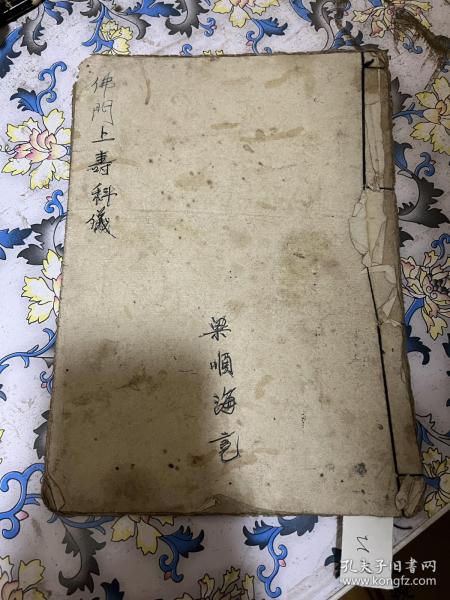 佛門上壽科儀
梁順海記
孔夫子旧书网
www.kongfz.com